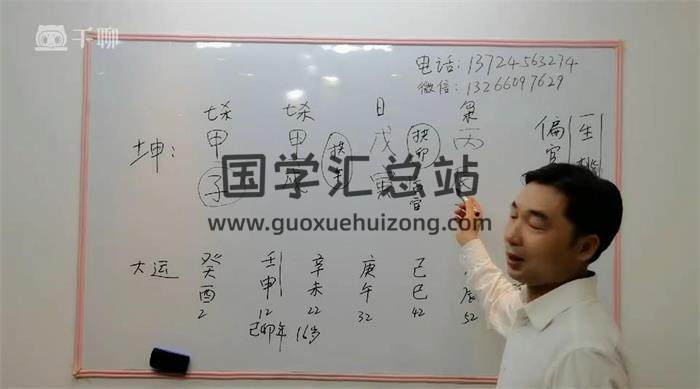 千聊
电话：13724563274
微信：13266097629
七杀 七杀 日 枭
坤： 甲 甲 戊 丙
子 寅
拱卯 官
偏官 一生
国学汇总站
www.guoxuehuizong.com
大运 癸酉 壬申 辛未 庚午 己巳 辰
2 12 22 32 42 52
己卯年 16岁